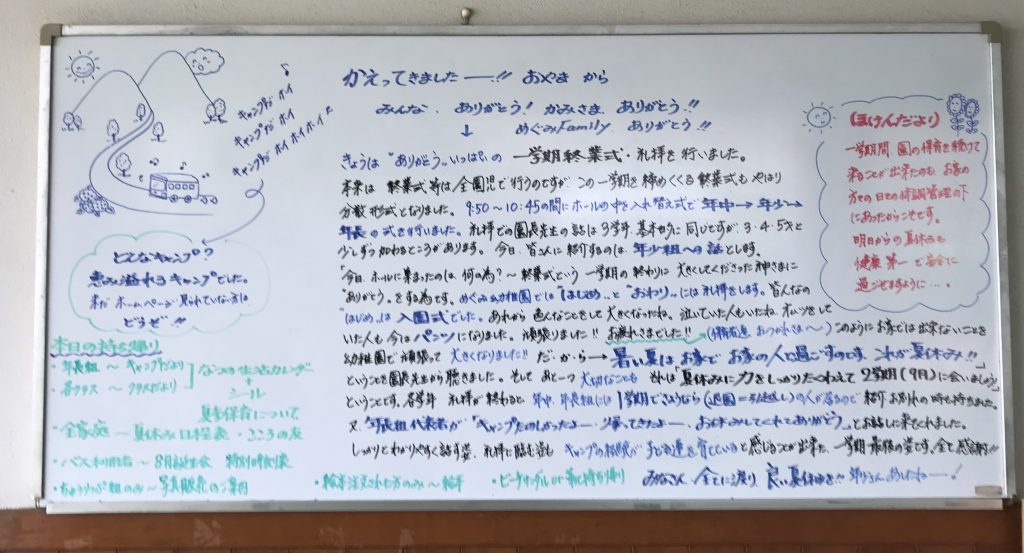 キャンプだ ホイ
キャンプだ ホイ
キャンプだ ホイホイホイ
どんなキャンプ?
恵み溢れるキャンプでした。
まだ ホームページ 見られていない方は
どうぞ!!
かえってきましたー!! おやま から
みんな、ありがとう! かみさま、ありがとう!!
↓ めぐみFamily ありがとう!!
きょうは "ありがとう"いっぱいの 一学期終業式・礼拝を行いました。
本来は 終業式等は全園児で行うのですが、この一学期を締めくくる終業式も やはり
分散形式となりました。9:50~10:45の間にホールの中を入れ替え式で年中→年少→
年長の式を行いました。礼拝での園長先生の話は3学年、基本的に同じですが、3・4・5才と
少しずつ加わるところがあります。今日、皆さんに紹介するのは、年少組への話とします。
「今日、ホールに集まったのは、何の為?~終業式という 一学期の終わりに 大きくしてくださった神さまに
"ありがとう"をする為です。めぐみ幼稚園では"はじめ"と"おわり"には礼拝をします。皆んなの
"はじめ"は 入園式でした。あれから 色んなことをして 大きくなったね。泣いていた人もいたね。オムツをして
いた人も今はパンツになりました。頑張りました!! お疲れさまでした!! このようにお家では出来ないことを
幼稚園で頑張って 大きくなりました!! だ・か・ら→暑い夏は お家で お家の人と過ごすのです。これが夏休み!!
ということを園長先生から聴きました。そして あと一つ 大切なことも それは「夏休みに力をしっかりたくわえて2学期(9月)に会いましょう」
ということです。各学年 礼拝が終わると 年中、年長組には1学期でさようなら(退園=引越し)の人が居るので 紹介 お別れの時も持ちました。
又、年長組代表者が「キャンプたのしかったよー、帰ってきたよー、お休みしてくれてありがとう」とお話しに来てくれました。
しっかりとわかりやすく話す姿、礼拝に臨む姿も キャンプの経験が 子ども達を育てていると感じることが出来た、一学期最後の姿です。全て感謝!!
みなさん 全てに渡り 良い夏休みを!!
ほけんだより
一学期間 園の保育を続けて
来ることが出来たのも お家の
方での日々の体調管理の下
にあったからこそです。
明日からの夏休みも
健康第一で安全に
過ごせますように…。
本日の持ち帰り
・年長組 ~ キャンプだより
・各クラス ~ クラスだより
なつの生活カレンダー
+
シール
夏季保育について
・全家庭 ~ 夏休み日程表・こころの友
・バス利用者 ~ 8月誕生会 特別時刻表
・ちゅうりっぷ組のみ ~ 写真販売のご案内
・絵本注文された方のみ ~ 絵本
・ビーチサンダル or 靴 持ち帰り